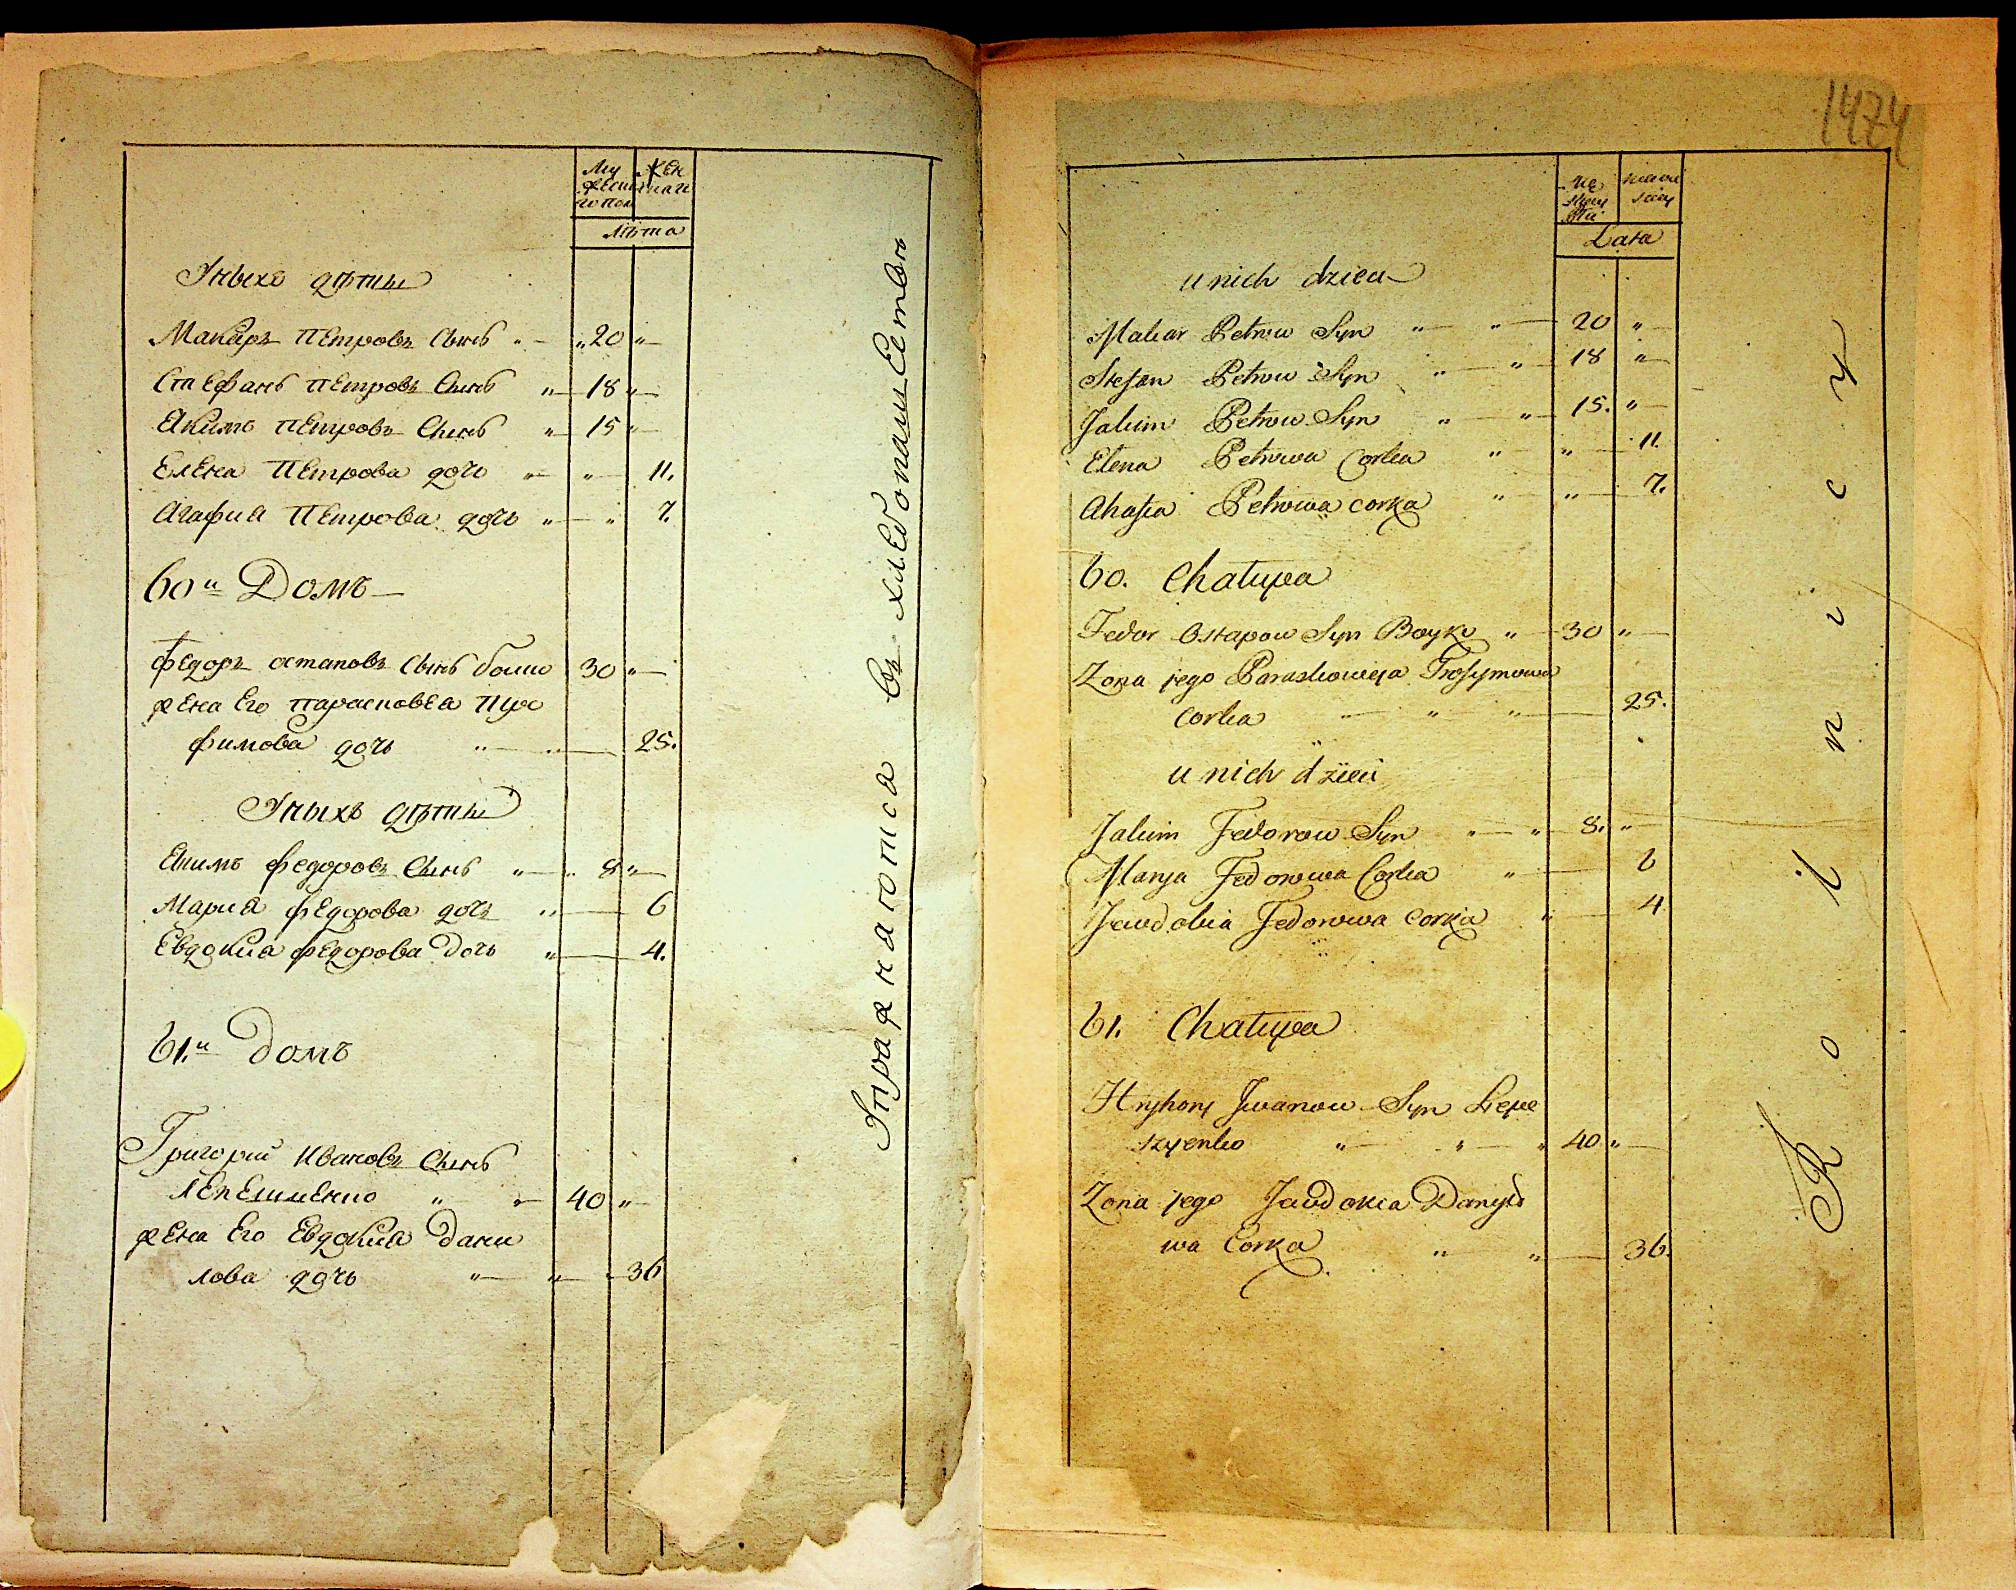 Му
жеска
го пол
Жен
скаго
Лѣта
Уныхъ дѣти
Макаръ Петровъ Сынъ „ 20 „
Стефанъ Петровъ Сынъ „ 18 „
Якимъ Петровъ Сынъ „ 15 „
Елена Петрова дочь „ „ 11.
Агафия Петрова дочь „ „ 7.
60й Домъ
Федоръ остаповъ Сынъ бойко 30 „
жена Его Парасковея Тро
фимова дочь „ 25.
Уныхъ дѣти
Якимъ федоровъ Сынъ „ 8 „
Мария федорова дочь „ 6
Евдокия федорова дочь „ 4.
61.й домъ
Григорий Ивановъ Сынъ
Лепешченко „ „ 40 „
жена Его Евдокия Дани
лова дочь „ „ 36
Упражняются въ хлебопашестве
1474
Mę
skiey
Płci
niewie
sciey
Lata
u nich dzieci
Makar Petrow Syn „ „ 20 „
Stefan Petrow Syn „ „ 18 „
Jakim Petrow Syn „ „ 15. „
Elena Petrowa Corka „ „ 11.
Ahafia Petrowa corka „ „ 7.
60. Chałupa
Fedor Ostapow Syn Boyko „ 30 „
Zona jego Paraskowija Trofymowa
corka „ „ 25.
u nich dzieci
Jakim Fedorow Syn „ „ 8. „
Marya Fedorowa Corka „ 6
Jewdokia Fedorowa corka „ 4
61. Chałupa
Hryhory Jwanow Syn Lepe
szyenko „ „ „ 40 „
Zona jego Jewdokia Danyło
wa Corka „ „ 36.
Rolnicy